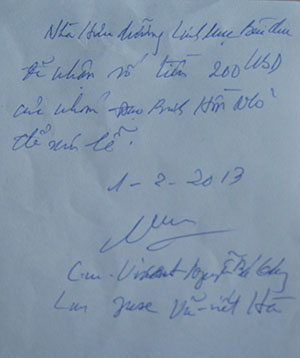 Nhà Hưu dưỡng Linh Mục Bùi Chu
đã nhận số tiền 200 USD
của nhóm Đạo Binh Hồn Nhỏ
để xin lễ.
1-2-2013
Cm. Vincent Nguyễn
Lm Juse Vũ-viết Hà